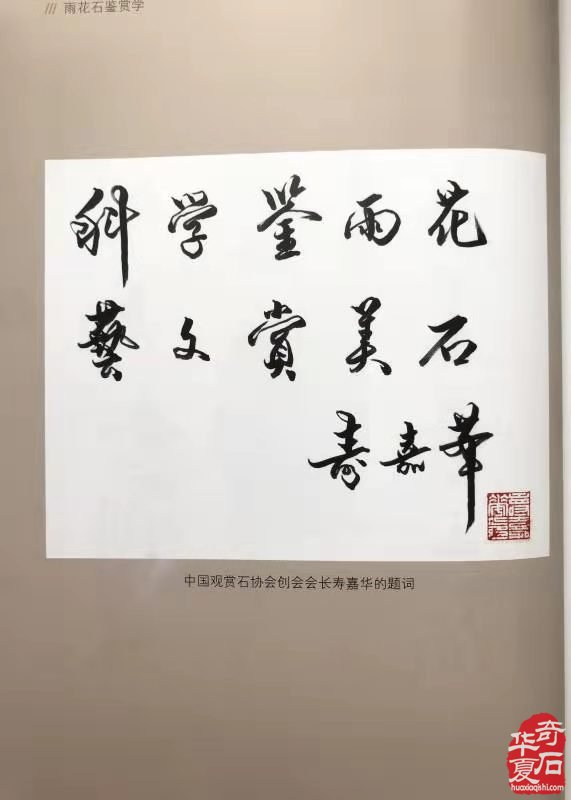 /// 雨花石鉴赏学
科学鉴雨花
藝文赏美石
寿嘉華
中国观赏石协会创会会长寿嘉华的题词
华夏奇石
huaxiaqishi.com